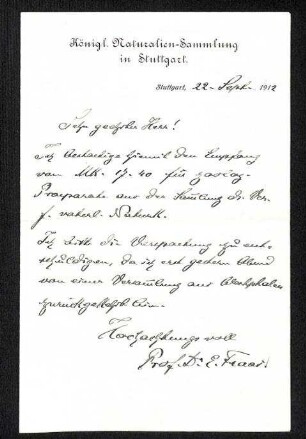 Königl. Naturalien-Sammlung
in Stuttgart.
Stuttgart, 22. Sept. 1912
Sehr geehrter Herr!
Ich bestätige hiemit den Empfang
von Mk. 17.40 für
Praeparate aus der Sammlung des Ver.
f. vaterl. Naturk.
Ich bitte die Verspaetung zu ent-
schuldigen, da ich erst gestern Abend
von einer Versamlung aus
zurückgekehrt bin.
Hochachtungsvoll
Prof. Dr. E. Fraas.